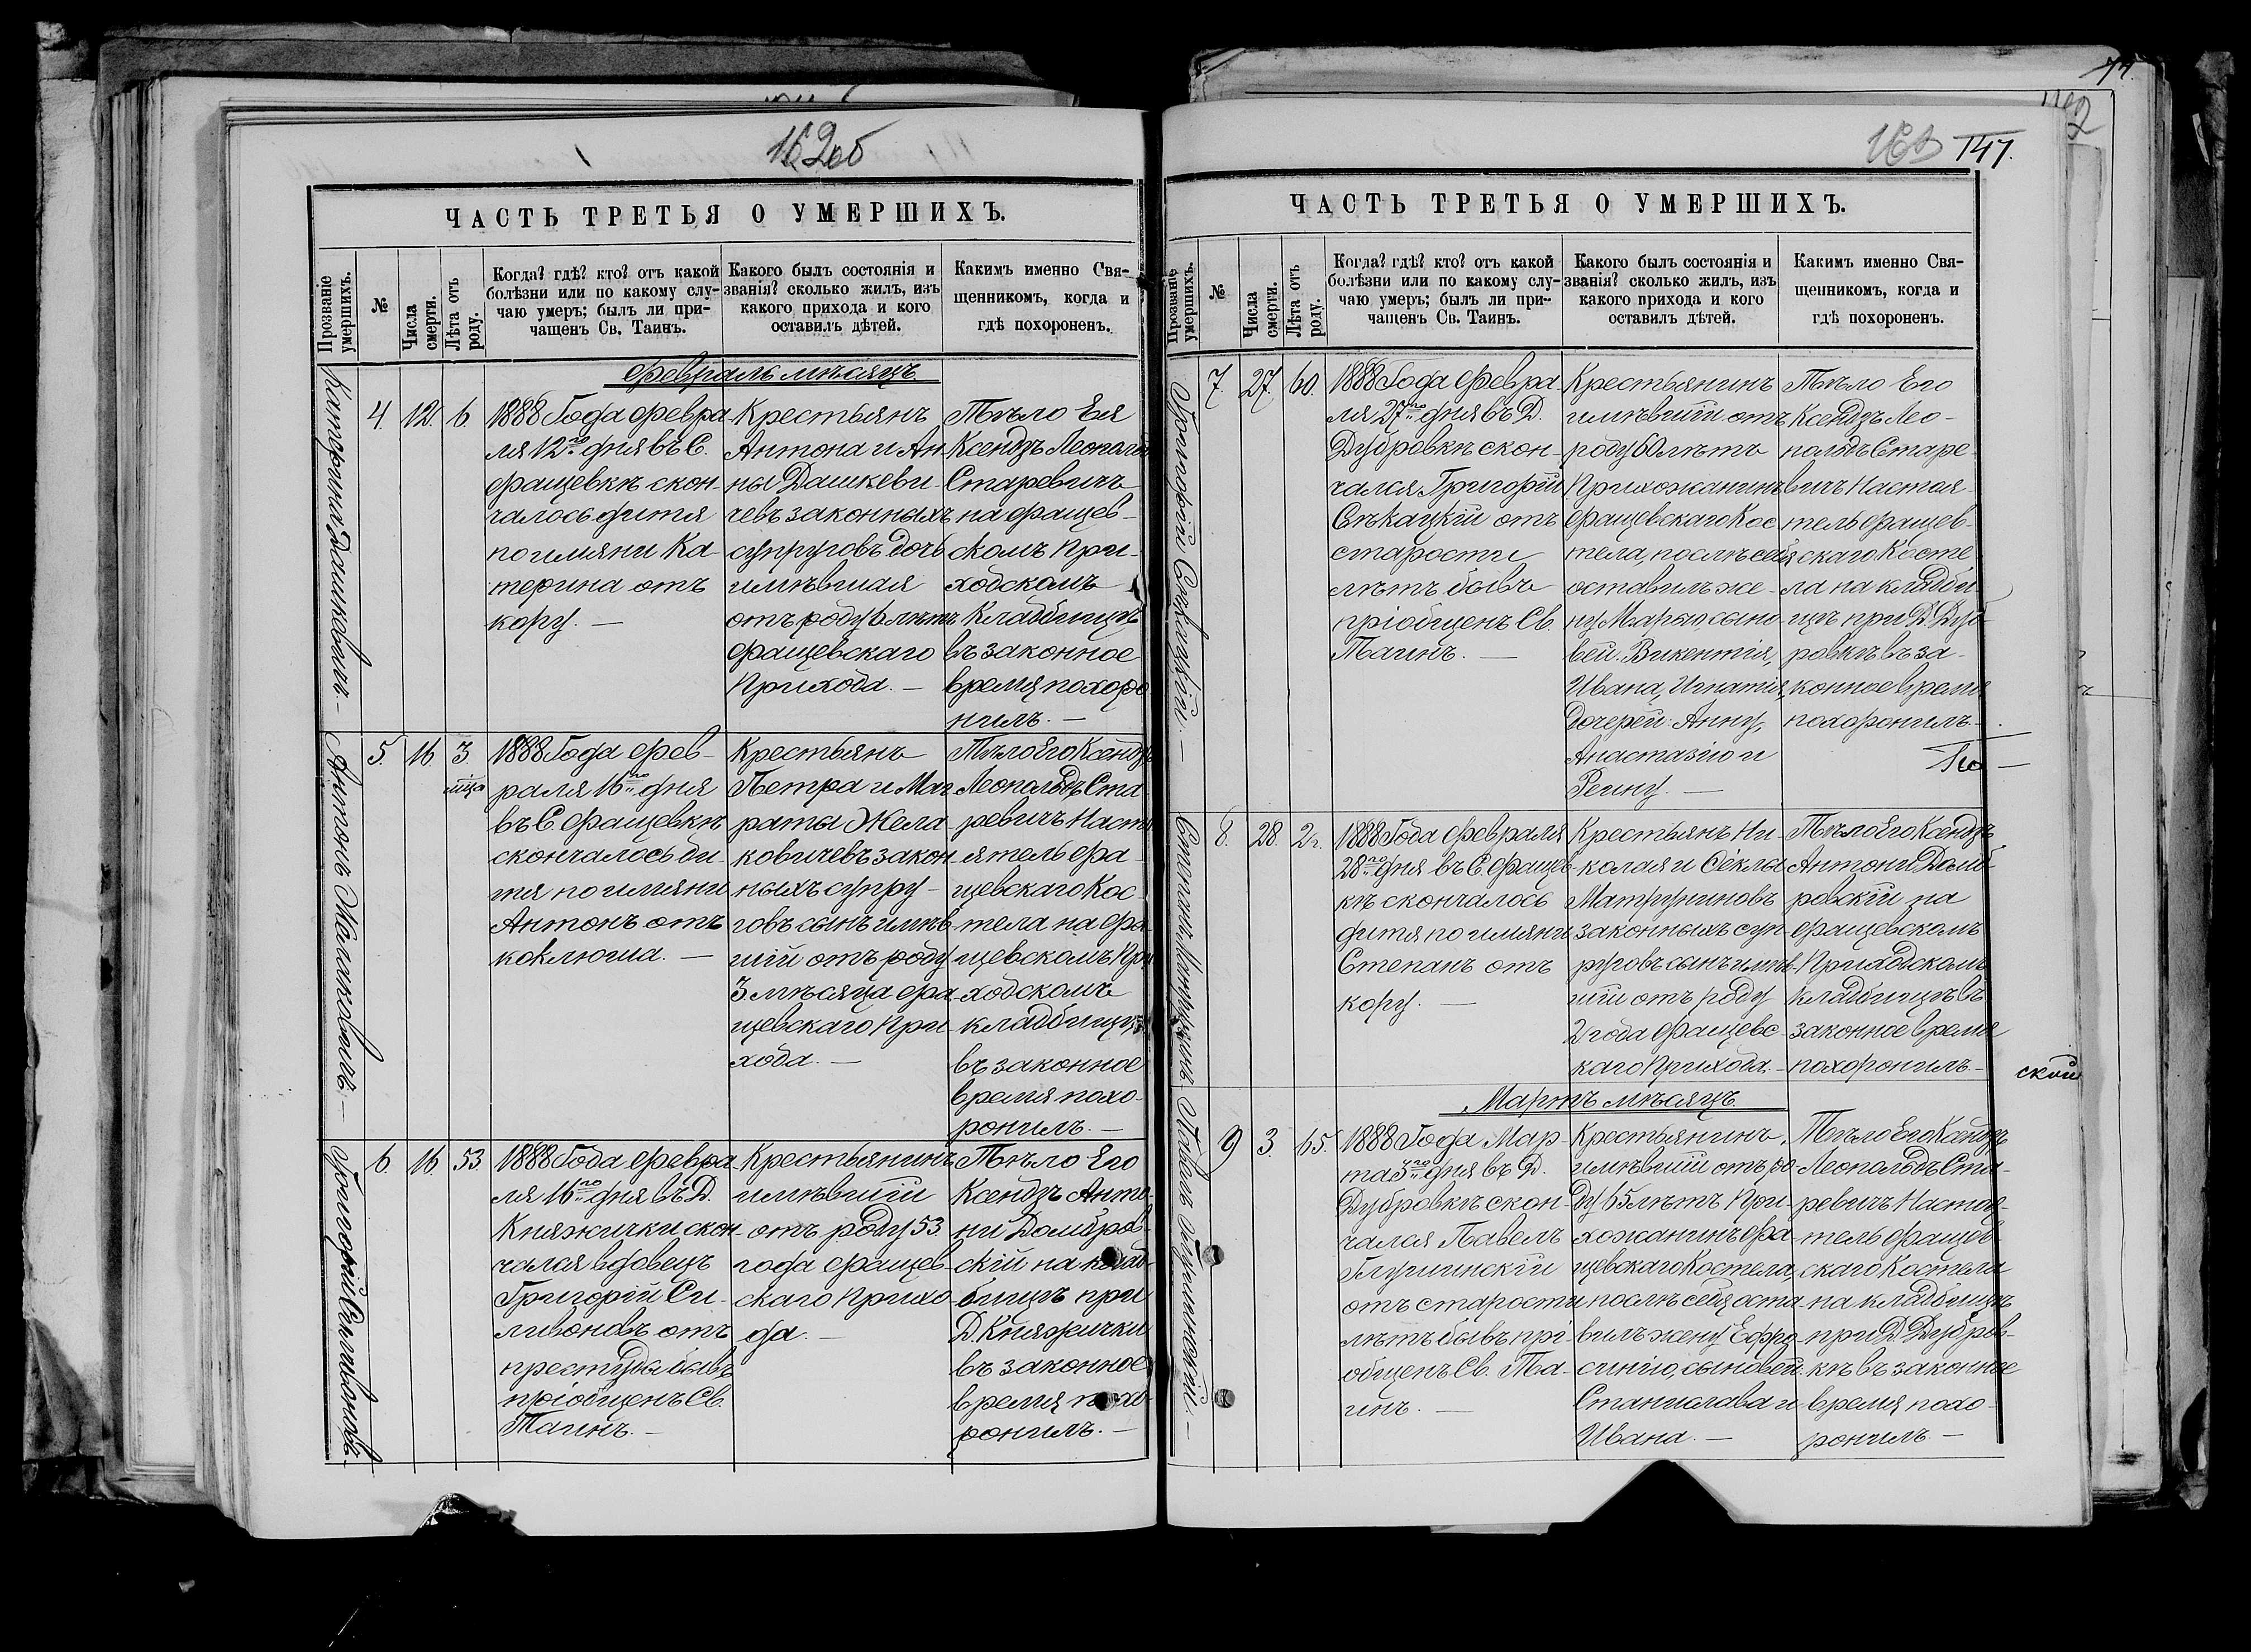 162об
ЧАСТЬ ТРЕТЬЯ О УМЕРШИХЪ.
Прозваніе умершихъ.
№
Числа смерти.
Лѣта отъ роду.
Когда? гдѣ? кто? отъ какой
болѣзни или по какому слу-
чаю умеръ; былъ ли при-
чащенъ Св. Таинъ.
Какого былъ состоянія и
званія? сколько жилъ, изъ
какого прихода и кого
оставилъ дѣтей.
Какимъ именно Свя-
щенникомъ, когда и
гдѣ похороненъ.
Февраль мѣсяцъ
Катерина Дашкевичъ -
4.
12.
6.
1888 Года Февра
ля 12го дня въ С.
Фащевкѣ скон-
чалось дитя
по имяни Ка-
терина отъ
кору. —
Крестьянъ
Антона и Ан-
ны Дашкеви-
чевъ законныхъ
супруговъ дочь
имѣвшая
отъ роду 6 лѣтъ
Фащевскаго
Прихода. —
Тѣло Ея
Ксендзъ Леопольд
Старевичъ
на Фащев-
скомъ При-
ходскомъ
Кладбищѣ
въ законное
время похоро
нилъ. —
Антонъ Желаковичъ —
5.
16.
3
мѣца
1888 Года Фев-
раля 16го дня
въ С. Фащевкѣ
скончалось ди-
тя по имяни
Антонъ отъ
коклюша. —
Крестьянъ
Петра и Мар
раты Жела-
ковичевъ закон-
ныхъ супру-
говъ сынъ имѣв-
шій отъ роду
3 мѣсяца Фа-
щевскаго При
хода. —
Тѣло Его Ксендзъ
Леопольдъ Ста
ревичъ Насто
ятель Фа-
щевскаго Кос-
тела на Фа-
щевскомъ При
ходскомъ
кладбищѣ
въ законное
время похо-
ронилъ. —
Григорій Силивоновъ.
6.
16.
53.
1888 Года Февра
ля 16го дня въ Д.
Княжички скон-
чался вдовецъ
Григорій Си-
ливоновъ отъ
простуды бывъ
пріобщенъ Св.
Таинъ. —
Крестьянинъ
имѣвшій
отъ роду 53
года Фащев-
скаго Прихо-
да. —
Тѣло Его
Ксендзъ Анто-
ни Домбров-
скій на клад-
бищѣ при
Д. Княжички
въ законное
время похо-
ронилъ. —
147.
ЧАСТЬ ТРЕТЬЯ О УМЕРШИХЪ.
Прозваніе умершихъ.
№
Числа смерти.
Лѣта отъ роду.
Когда? гдѣ? кто? отъ какой
болѣзни или по какому слу-
чаю умеръ; былъ ли при-
чащенъ Св. Таинъ.
Какого былъ состоянія и
званія? сколько жилъ, изъ
какого прихода и кого
оставилъ дѣтей.
Какимъ именно Свя-
щенникомъ, когда и
гдѣ похороненъ.
Григорій Сѣкацкій. —
7.
27.
60.
1888 Года Февра
ля 27го дня въ Д.
Дубровкѣ скон-
чался Григорій
Сѣкацкій отъ
старости
лѣтъ бывъ
пріобщенъ Св.
Таинъ. —
Крестьянинъ
имѣвшій отъ
роду 60 лѣтъ
Прихожанинъ
Фащевскаго Кос
тела, послѣ себя
оставилъ же-
ну Марью, сыно
вей: Викентія,
Ивана, Игнатія,
дочерей: Анну,
Анастазію и
Реину. —
Тѣло Его
Ксендзъ Лео-
польдъ Старе-
вичъ Настоя-
тель Фащев-
скаго Косте-
ла на кладби-
щѣ при Д. Дуб-
ровкѣ въ за-
конное время
похоронилъ. —
Степанъ Матрунинъ
8.
28.
2 г.
1888 Года Февраля
28го дня въ С. Фащев-
кѣ скончалось
дитя по имяни
Степанъ отъ
кору. —
Крестьянъ Ни-
колая и Ѳеклы
Матруниновъ
законныхъ суп-
руговъ сынъ имѣв
шій отъ роду
2 года Фащевс-
каго Прихода. —
Тѣло Его Ксендзъ
Антони Домб-
ровскій на
Фащевскомъ
Приходскомъ
кладбищѣ въ
законное время
похоронилъ —
ской
Мартъ мѣсяцъ.
Павелъ Глушинскій. —
9
3.
65.
1888 Года Мар-
та 3го дня въ Д.
Дубровкѣ скон-
чался Павелъ
Глушинскій
отъ старости
лѣтъ бывъ прі-
общенъ Св. Та-
инъ. —
Крестьянинъ,
имѣвшій отъ ро
ду 65 лѣтъ При-
хожанинъ Фа-
щевскаго Костела,
послѣ себя оста-
вилъ жену Ефро-
синію, сыновей:
Станислава и
Ивана. —
Тѣло Его Ксендзъ
Леопольдъ Ста-
ревичъ Настоя-
тель Фащев-
скаго Костела
на кладбищѣ
при Д. Дубров-
кѣ въ законное
время похо-
ронилъ —